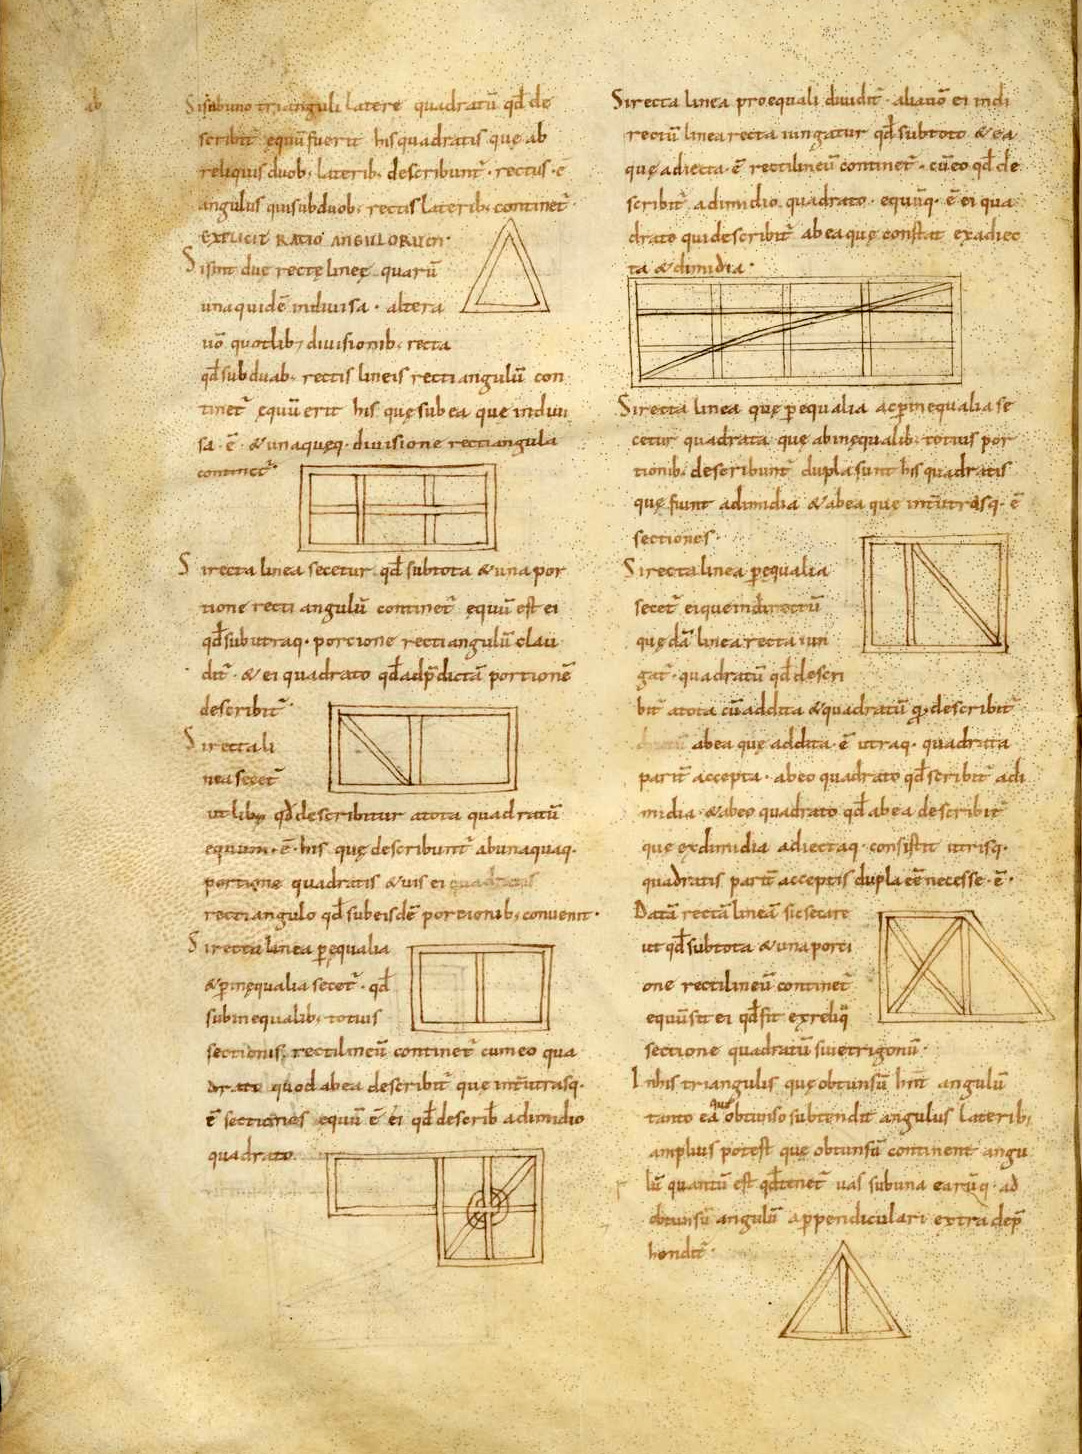 ab
Si ab uno trianguli latere quadratū qđ de
scribit̄ equū fuerit his quadratis que ab
reliquis duob; laterib; describunt̄ · rectus · ē
angulus qui sub duob; rectis laterib; continet̄ ·
EXPLICIT RATIO ANGULORUM ·
Si sint due recte lineę quarū
una quidē indivisa · altera
uō quotlib; divisionib; recta
qđ sub duab; rectis lineis recti angulū con
tinet̄ ęquū erit his quę sub ea que indivi
sa · ē · & unaqueq· divisione rectiangula
continet̄
Si recta linea secetur qđ sub tota & una por
tione recti angulū continet̄ equū est ei
qđ sub utraq· portione rectiangulū clau
dit̄ · & ei quadrato qđ ad p̄dictā portionē
describit̄ ·
Si recta li
nea secet̄
ut lib; qđ describitur a tota quadratū
equum · ē · his quę describunt̄ ab unaquaq·
portione quadratis & uis ei
rectiangulo qđ sub eisdē portionib; convenit ·
Si recta linea p̱ equalia
& p̱ inęqualia secet̄ · qđ
sub inequalib; totius
sectionis; rectilineū continet̄ cum eo qua
drato quod ab ea describit̄ que int̄ utrasq·
ē sectiones equū ē ei qđ describ̄ a dimidio
quadrato
Si recta linea pro equali dividit̄ · aliauō ei indi
rectū linea recta iungatur qđ sub tota & ea
quę adiecta · ē rectilineū continet̄ · cū eo qđ de
scribit̄ a dimidio quadrato · equūq· ē ei qua
drato qui describit̄ ab ea quę constat ex adiec
ta & dimidia ·
Si recta linea quę p̱ equalia ac p̱ inequalia se
cetur quadrata que ab inęqualib; totius por
tionib; describunt̄ dupla sunt his quadratis
quę fiunt a dimidia & ab ea quę int̄ utrasq· ē
sectiones ·
Si recta linea p̱ equalia
secet̄ eique in directū
quędā linea recta iun
gat̄ · quadratū qđ descri
bit̄ a tota cū addita & quadratū qđ describit̄
ab ea quę addita · ē utraq· quadrata
parit̄ accepta · ab eo quadrato qđ scribit̄ a di
midia · & ab eo quadrato qđ ab ea describit̄
quę ex dimidia adiectaq· consistit utrisq·
quadratis parit̄ acceptis dupla eē necesse · ē ·
Datā rectā lineā sic secare
ut qđ sub tota & una porti
one rectilineū continet̄
equū sit ei qđ fit ex reliq̄
sectione quadratū sive trigonū ·
In his triangulis quę obtunsū hnt̄ angulū
tanto ea quę obtunso subtendit angulus laterib;
amplius potest quę obtunsū continent angu
lū quantū est qđ tenet̄ uas sub una earūq· ad
obtunsū angulū a p̱pendiculari extra dep̄
hendit̄ ·